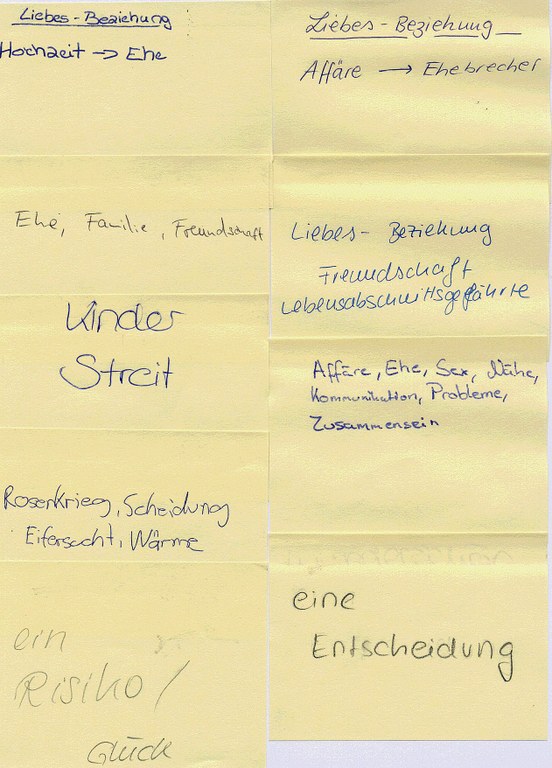 Liebes-Beziehung
Hochzeit → Ehe
Ehe, Familie, Freundschaft
Kinder
Streit
Rosenkrieg, Scheidung
Eifersucht, Wärme
ein
Risiko /
Glück
Liebes-Beziehung
Affäre → Ehebrecher
Liebes-Beziehung
Freundschaft
Lebensabschnittsgefährte
Affäre, Ehe, Sex, Nähe,
Kommunikation, Probleme,
Zusammensein
eine
Entscheidung